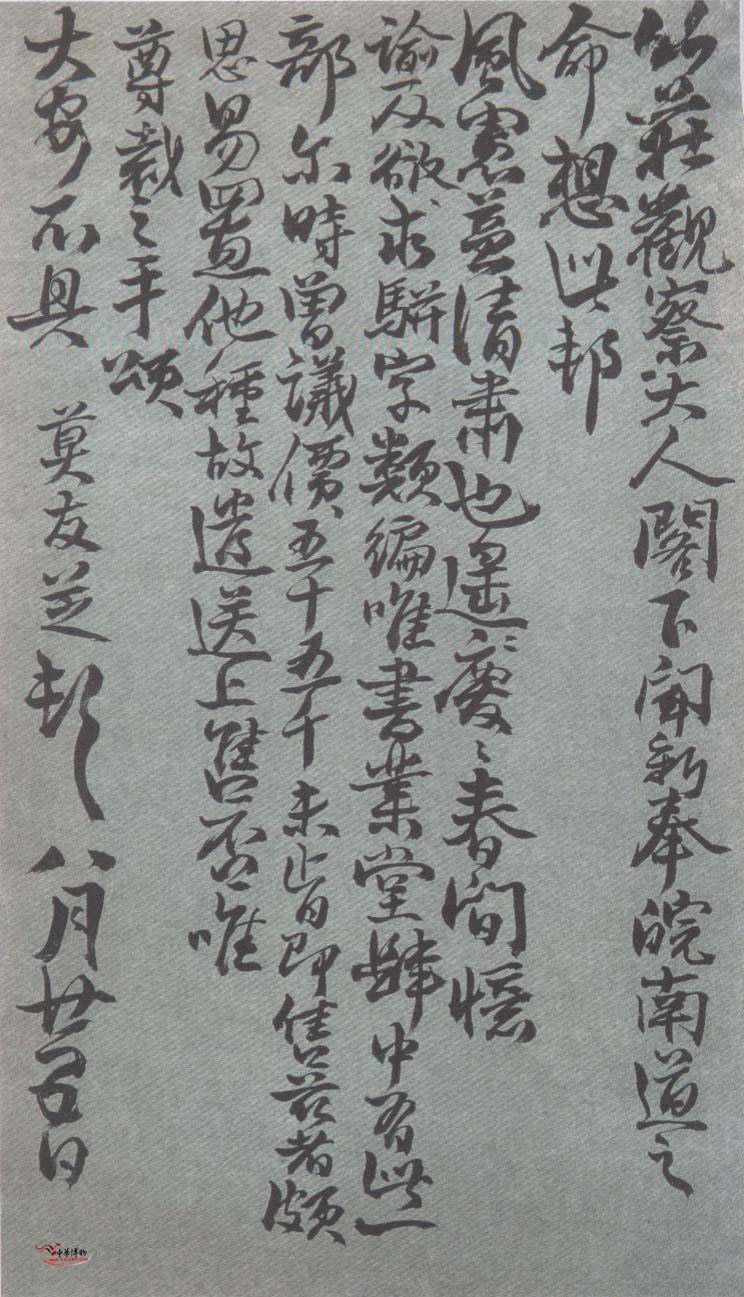 竹莊觀察大人閣下聞新奉皖南道之
命想此邦
風憲益清肅也遙慶遙慶春間憶
諭及欲求駢字類編唯書業堂肆中有此一
部尔時曾議價五十五千未肯即售茲者頗
思易置他種故遣送上售否唯
尊裁之手頌
大安不具 莫友芝頓 八月廿五日
中華博物